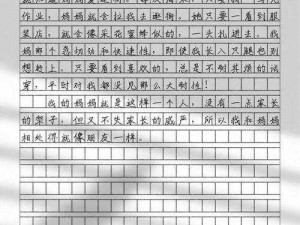 作业，妈妈就会拉我去逛街。她只要一看到服
装店，就会像采花蜜蜂似的，一头扎进去。我
妈那个急切劲和快速性，即使我长八只腿也别
想赶上。只要看到喜欢的，总是不耐其烦的试
穿，平时对我都没见那么大耐性！
我的妈妈就是这样一个人，没有一点家长
的架子，但又不失家长的威严，所以我和妈妈
相处得就像朋友一样。